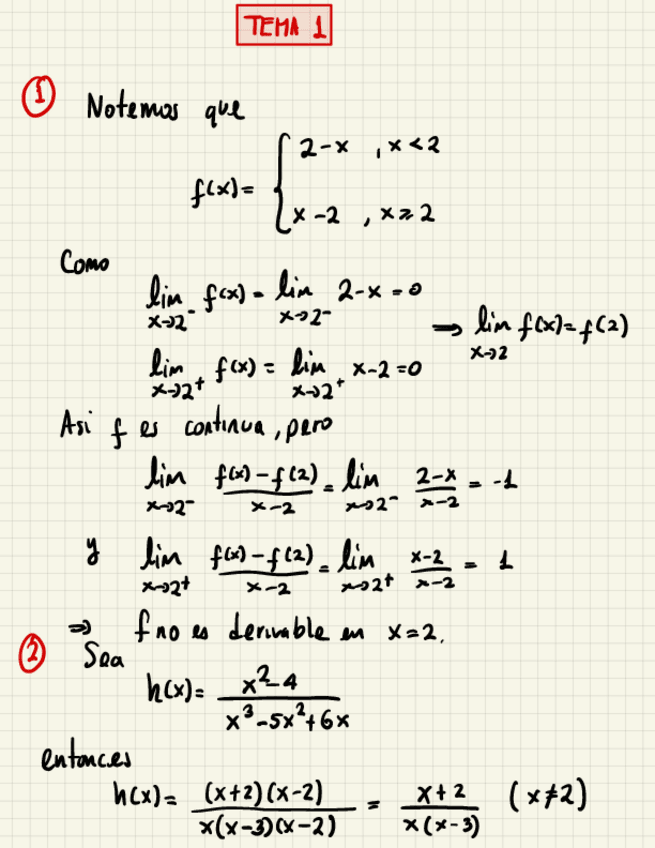 TEMA 1
① Notemos que
f(x)= { 2-x , x<2
x-2 , x≥2
Como
lim x→2⁻ f(x) = lim x→2⁻ 2-x = 0
⇒ lim x→2 f(x)=f(2)
lim x→2⁺ f(x) = lim x→2⁺ x-2 = 0
Asi f es continua, pero
lim x→2⁻ (f(x)-f(2))/(x-2) = lim x→2⁻ (2-x)/(x-2) = -1
y lim x→2⁺ (f(x)-f(2))/(x-2) = lim x→2⁺ (x-2)/(x-2) = 1
⇒ f no es derivable en x=2.
② Sea
h(x)= (x²-4)/(x³-5x²+6x)
entonces
h(x)= ((x+2)(x-2))/(x(x-3)(x-2)) = (x+2)/(x(x-3)) (x≠2)